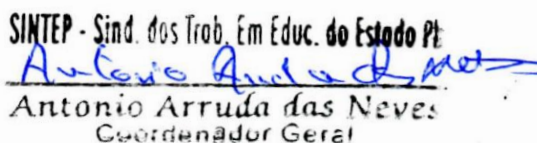 SINTEP - Sind. dos Trab. Em Educ. do Estado Pb
Antonio Arruda das Neves
Antonio Arruda das Neves
Coordenador Geral